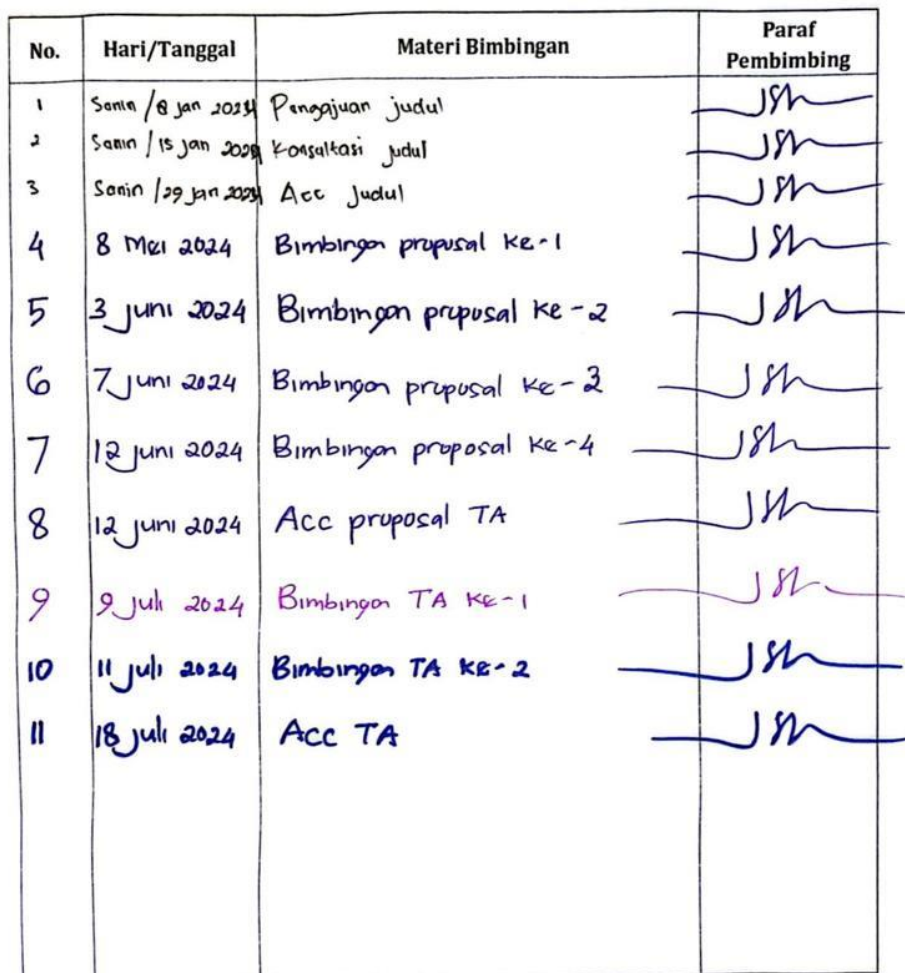 No. Hari/Tanggal Materi Bimbingan Paraf Pembimbing
1 Senin / 8 Jan 2024 Pengajuan judul
2 Senin / 15 Jan 2024 Konsultasi judul
3 Senin / 29 Jan 2024 Acc Judul
4 8 Mei 2024 Bimbingan proposal ke-1
5 3 Juni 2024 Bimbingan proposal ke-2
6 7 Juni 2024 Bimbingan proposal ke-3
7 12 Juni 2024 Bimbingan proposal ke-4
8 12 Juni 2024 Acc proposal TA
9 9 Juli 2024 Bimbingan TA ke-1
10 11 Juli 2024 Bimbingan TA ke-2
11 18 Juli 2024 Acc TA